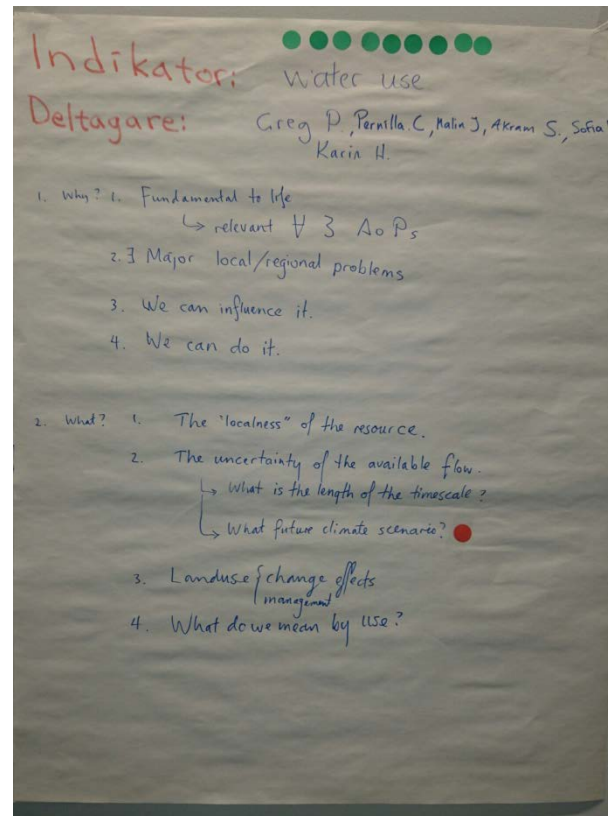 Indikator: water use
Deltagare: Greg P., Pernilla C, Malin J, Akram S., Sofia
Karin H.
1. Why? 1. Fundamental to life
↳ relevant ∀ 3 AoPs
2. ∃ Major local/regional problems
3. We can influence it.
4. We can do it.
2. What? 1. The "localness" of the resource.
2. The uncertainty of the available flow.
↳ What is the length of the timescale?
↳ What future climate scenario?
3. Landuse { change effects
management
4. What do we mean by use?